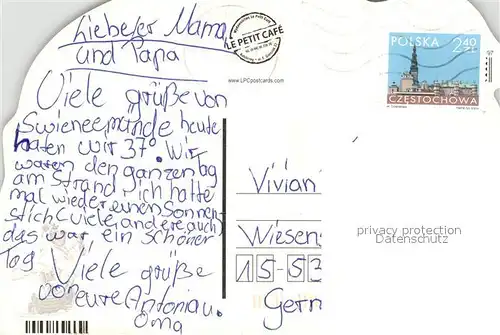 Liebeser Mama
und Papa
LE PETIT CAFÉ
POLSKA 2,40 ZŁ
CZĘSTOCHOWA
www.LPCpostcards.com
Viele grüße von
Swieneemünde heute
haten wir 37° Wir
waren den ganzen Tag
am Strand ich hatte
mal wieder einen Sonnen-
stich (viele andere auch)
das war ein schöner
Tag
Viele grüße
von eure Antonia u.
Oma
Vivian
Wiesen
15-53
Germ
privacy protection
Datenschutz